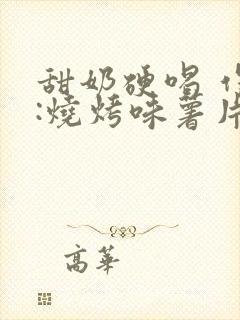 甜奶硬唱
:燒烤味薯片
高華